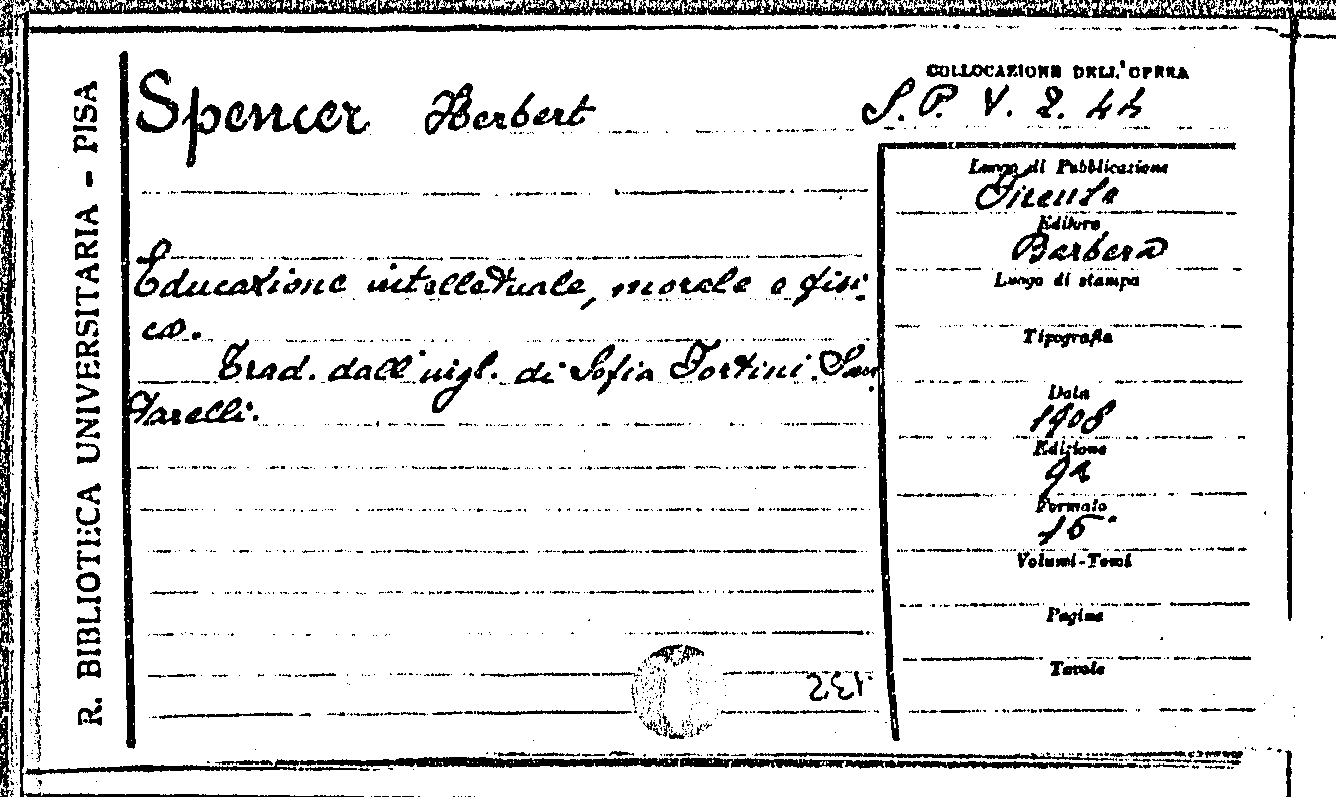 R. BIBLIOTECA UNIVERSITARIA - PISA
Spencer Herbert
COLLOCAZIONE DELL'OPERA
S. P. V. 2. 44
Luogo di Pubblicazione
Firenze
Editore
Barbera
Luogo di stampa
Educazione intellettuale, morale e fisi-
ca.
Tipografia
Trad. dall'ingl. di Sofia Fortini-San
tarelli.
Data
1908
Edizione
9a
Formato
16°
Volumi-Tomi
Pagine
Tavole
132